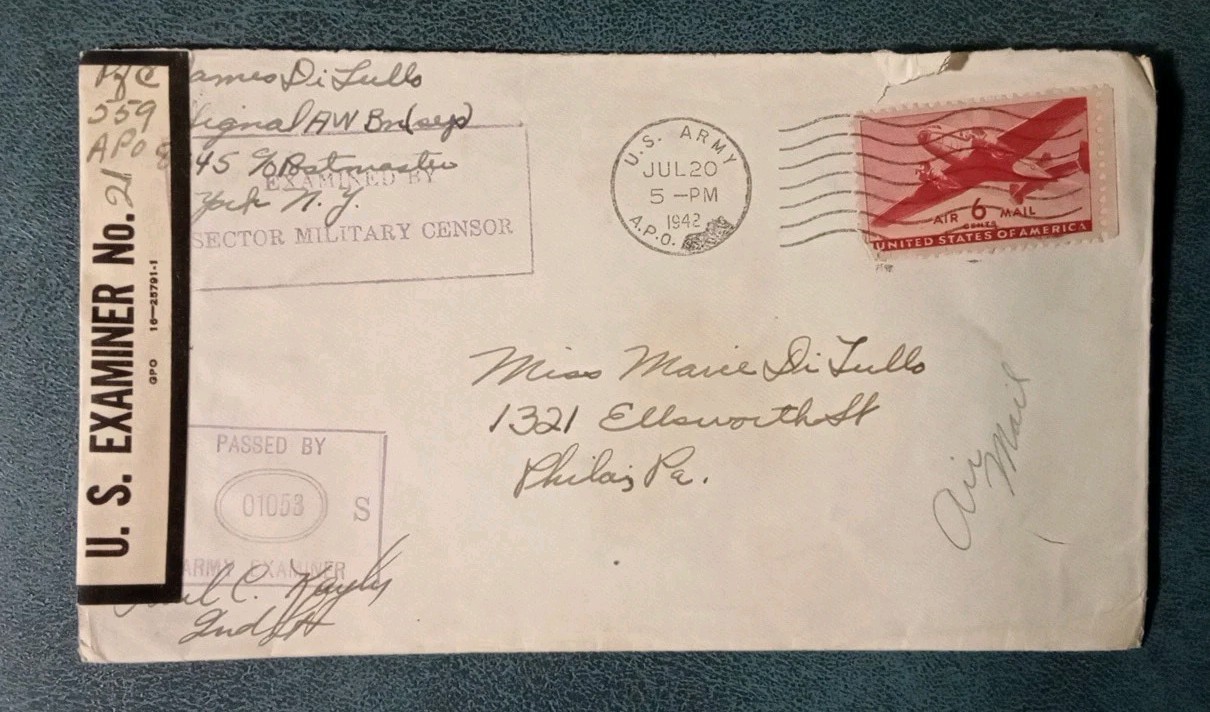 Pfc James Di Tullo
559 Signal AW Bn (sep)
APO 845 c/o Postmaster
York N. Y.
EXAMINED BY
SECTOR MILITARY CENSOR
U. S. EXAMINER No. 21
GPO 16—25791-1
U. S. ARMY
JUL 20
5 -PM
1942
A.P.O.
AIR 6 MAIL
CENTS
UNITED STATES OF AMERICA
Miss Marie Di Tullo
1321 Ellsworth St
Phila, Pa.
Air
Mail
PASSED BY
01053
S
ARMY EXAMINER
C.
2nd Lt